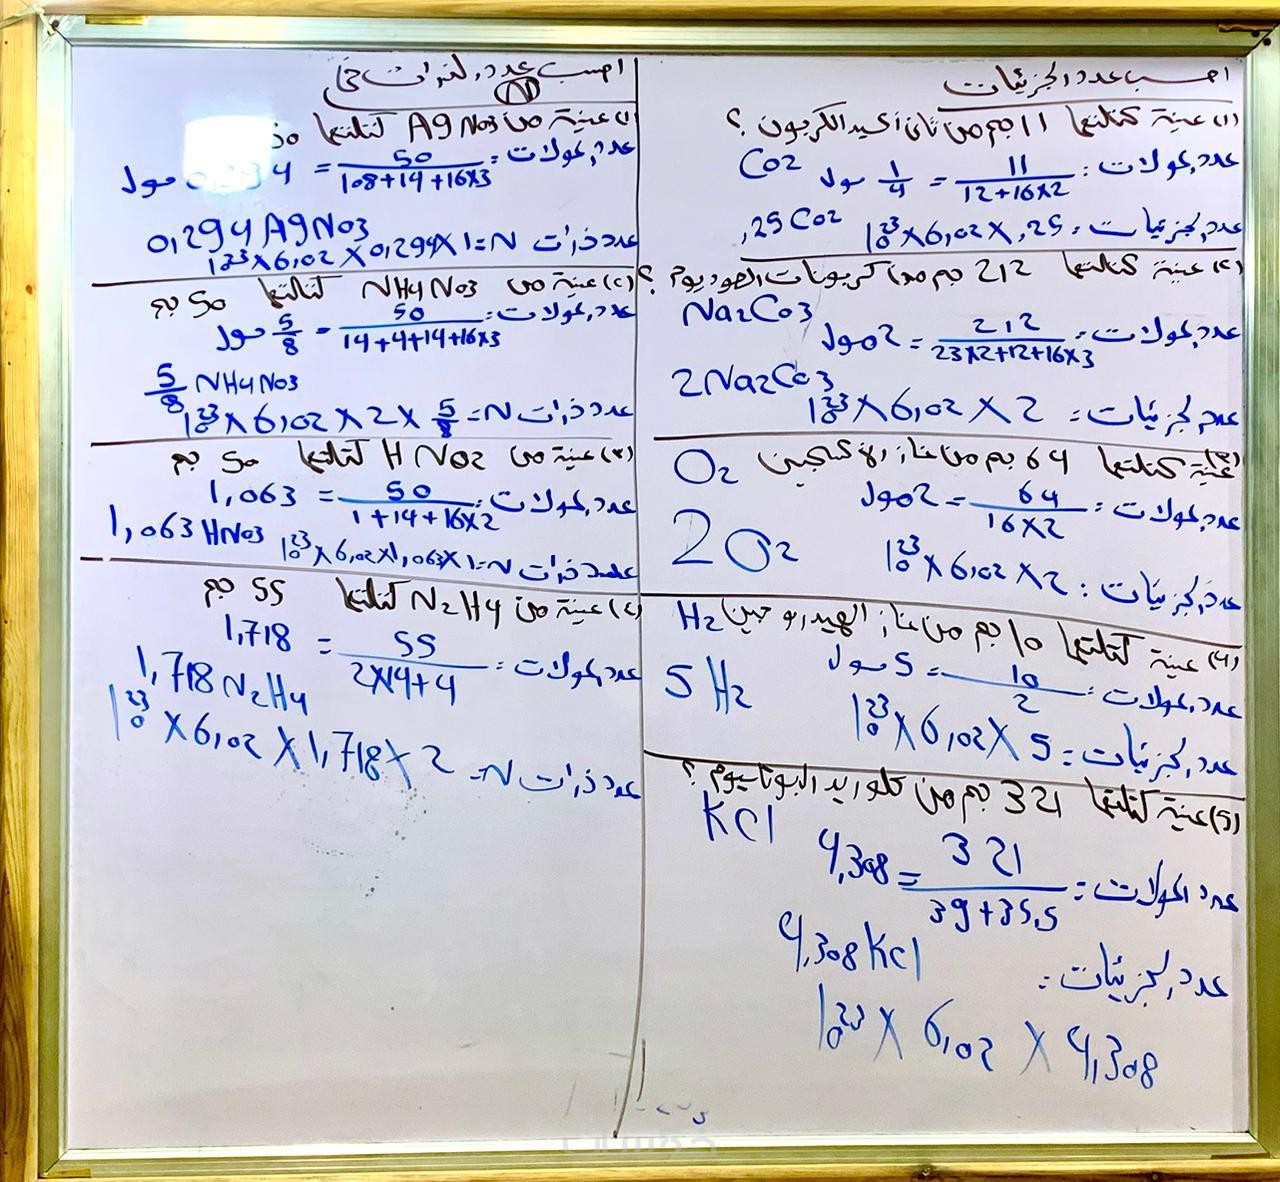 احسب عدد الجزيئات
(١) عينة كتلتها 11 جم من ثاني أكسيد الكربون ؟
CO2
عدد المولات = 11 / 12+16×2 = 1/4 مول
,25 CO2
عدد الجزيئات = ,25 × 6,02 × 10^23
(٢) عينة كتلتها 212 جم من كربونات الصوديوم ؟
Na2CO3
عدد المولات = 212 / 23×2+12+16×3 = 2 مول
2Na2CO3
عدد الجزيئات = 2 × 6,02 × 10^23
(٣) عينة كتلتها 64 جم من غاز الأكسجين O2
عدد المولات = 64 / 16×2 = 2 مول
2O2
عدد الجزيئات = 2 × 6,02 × 10^23
(٤) عينة كتلتها 10 جم من غاز الهيدروجين H2
عدد المولات = 10 / 2 = 5 مول
5H2
عدد الجزيئات = 5 × 6,02 × 10^23
(5) عينة كتلتها 321 جم من كلوريد البوتاسيوم ؟
KCl
عدد المولات = 321 / 39+35,5 = 4,308
4,308 KCl
عدد الجزيئات =
4,308 × 6,02 × 10^23
احسب عدد الذرات في
N
(١) عينة من AgNO3 كتلتها 50
عدد المولات = 50 / 108+14+16×3 = 0,294 مول
0,294 AgNO3
عدد ذرات N = 1 × 0,294 × 6,02 × 10^23
(٢) عينة من NH4NO3 كتلتها 50 جم
عدد المولات = 50 / 14+4+14+16×3 = 5/8 مول
5/8 NH4NO3
عدد ذرات N = 5/8 × 2 × 6,02 × 10^23
(٣) عينة من HNO2 كتلتها 50 جم
عدد المولات = 50 / 1+14+16×2 = 1,063
1,063 HNO3
عدد ذرات N = 1 × 1,063 × 6,02 × 10^23
(٤) عينة من N2H4 كتلتها 55 جم
عدد المولات = 55 / 2×14+4 = 1,718
1,718 N2H4
عدد ذرات N = 2 × 1,718 × 6,02 × 10^23